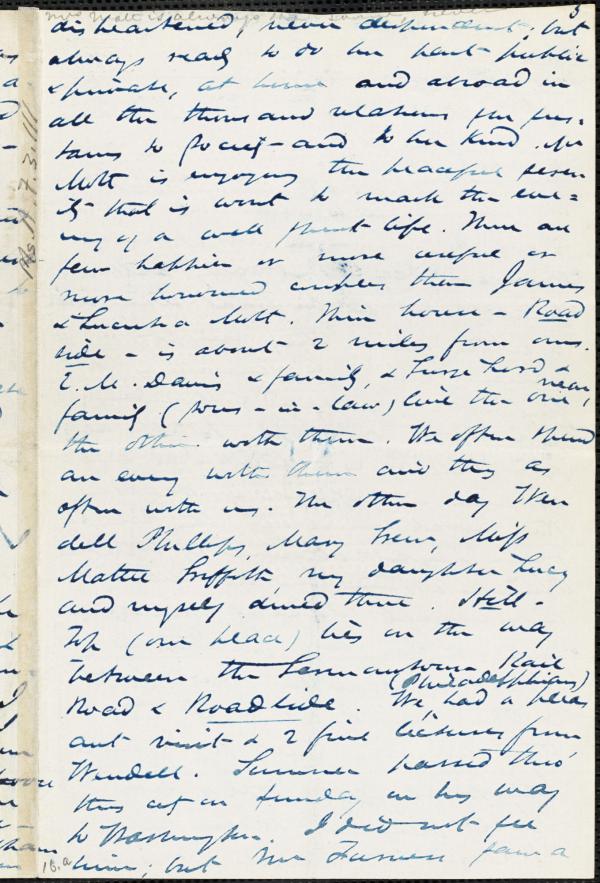 3
Mrs Mott is always the same, never
disheartened, never despondent, but
always ready to do her part public
& private, at home and abroad in
all the thous and relations she sus=
tains to Society - and to her kind. Mr
Mott is enjoying the peaceful seren
ity that is wont to mark the eve=
ning of a well spent life. There are
few happier or more useful or
more honoured couples than James
& Lucretia Mott. Their house - Road
side - is about 2 miles from ours.
E. M. Davis & family, & Lord &
family (sons-in-law) live the one near,
the other with them. We often spend
an eveng with them and they as
often with us. The other day Wen
dell Phillips, Mary Grew, Miss
Mattie Griffith, my daughter Lucy
and myself dined there. Hill-
Top (our place) lies on the way
between the Germantown Rail
(Philadelphians)
Road & Roadside. We had a pleas
ant visit & 2 fine lectures from
Wendell. Sumner passed thro'
this city on Sunday on his way
to Washington. I did not see
him; but Mr Furness saw a
18.a
7.3.111